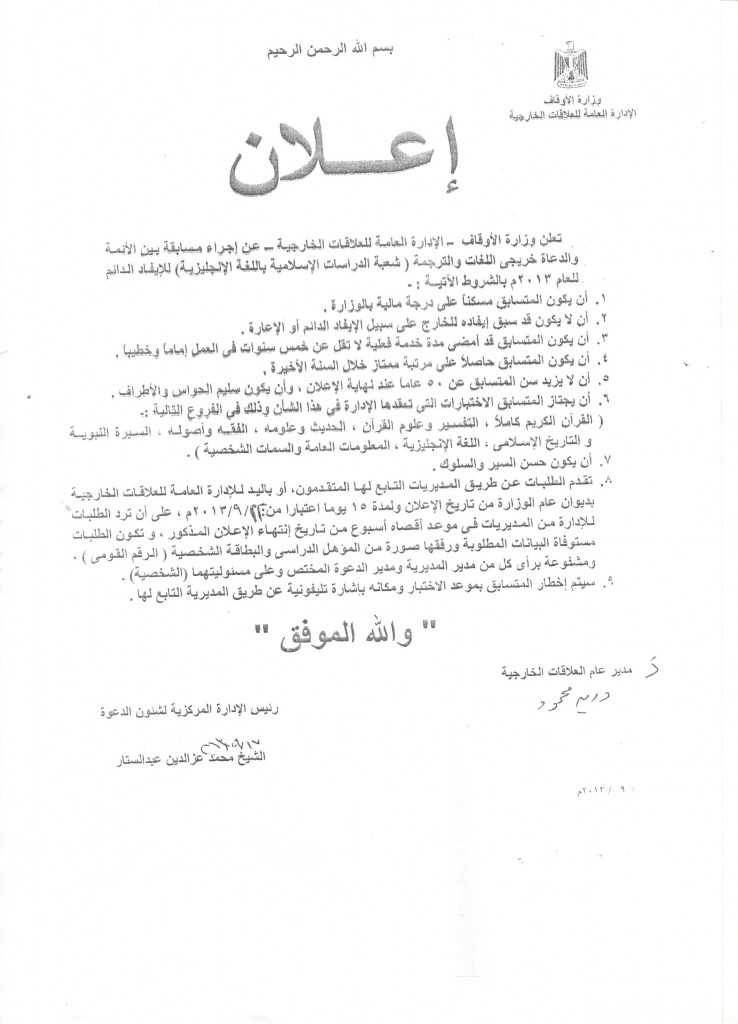 بسم الله الرحمن الرحيم
وزارة الأوقاف
الإدارة العامة للعلاقات الخارجية
إعـــلان
تعلن وزارة الأوقاف – الإدارة العامة للعلاقات الخارجية – عن إجراء مسابقة بين الأئمة
والدعاة خريجى اللغات والترجمة ( شعبة الدراسات الإسلامية باللغة الإنجليزية) للإيفاد الدائم
للعام ٢٠١٣م بالشروط الآتيـة : -
١. أن يكون المتسابق مسكناً على درجة مالية بالوزارة .
٢. أن لا يكون قد سبق إيفاده للخارج على سبيل الإيفاد الدائم أو الإعارة .
٣. أن يكون المتسابق قد أمضى مدة خدمة فعلية لا تقل عن خمس سنوات فى العمل إماماً وخطيباً .
٤. أن يكون المتسابق حاصلاً على مرتبة ممتاز خلال السنة الأخيرة .
٥. أن لا يزيد سن المتسابق عن ٥٠ عاما عند نهاية الإعلان ، وأن يكون سليم الحواس والأطراف .
٦. أن يجتاز المتسابق الاختبارات التى تعقدها الإدارة في هذا الشأن وذلك في الفروع التالية :-
( القرآن الكريم كاملاً ، التفسير وعلوم القرآن ، الحديث وعلومه ، الفقـه وأصولـه ، السيـرة النبويـة
و التاريخ الإسلامى ، اللغة الإنجليزية ، المعلومات العامة والسمات الشخصية ) .
٧. أن يكون حسن السير والسلوك .
٨. تقدم الطلبات عن طريق المديريات التابع لها المتقدمون، أو باليد للإدارة العامة للعلاقات الخارجية
بديوان عام الوزارة من تاريخ الإعلان ولمدة ١٥ يوما اعتبارا من: /٢٠١٣/٩م ، على أن ترد الطلبات
للإدارة من المديريات فى موعد أقصاه أسبوع من تاريخ إنتهاء الإعلان المذكور ، و تكون الطلبات
مستوفاة البيانات المطلوبة ورفقها صورة من المؤهل الدراسى والبطاقة الشخصية ( الرقم القومى ) ،
ومشفوعة برأى كل من مدير المديرية ومدير الدعوة المختص وعلى مسئوليتهما (الشخصية) .
٩. سيتم إخطار المتسابق بموعد الاختبار ومكانه بإشارة تليفونية عن طريق المديرية التابع لها .
" والله الموفق "
مدير عام العلاقات الخارجية
رئيس الإدارة المركزية لشئون الدعوة
الشيخ محمد عزالدين عبدالستار
/ ٩ / ٢٠١٣م